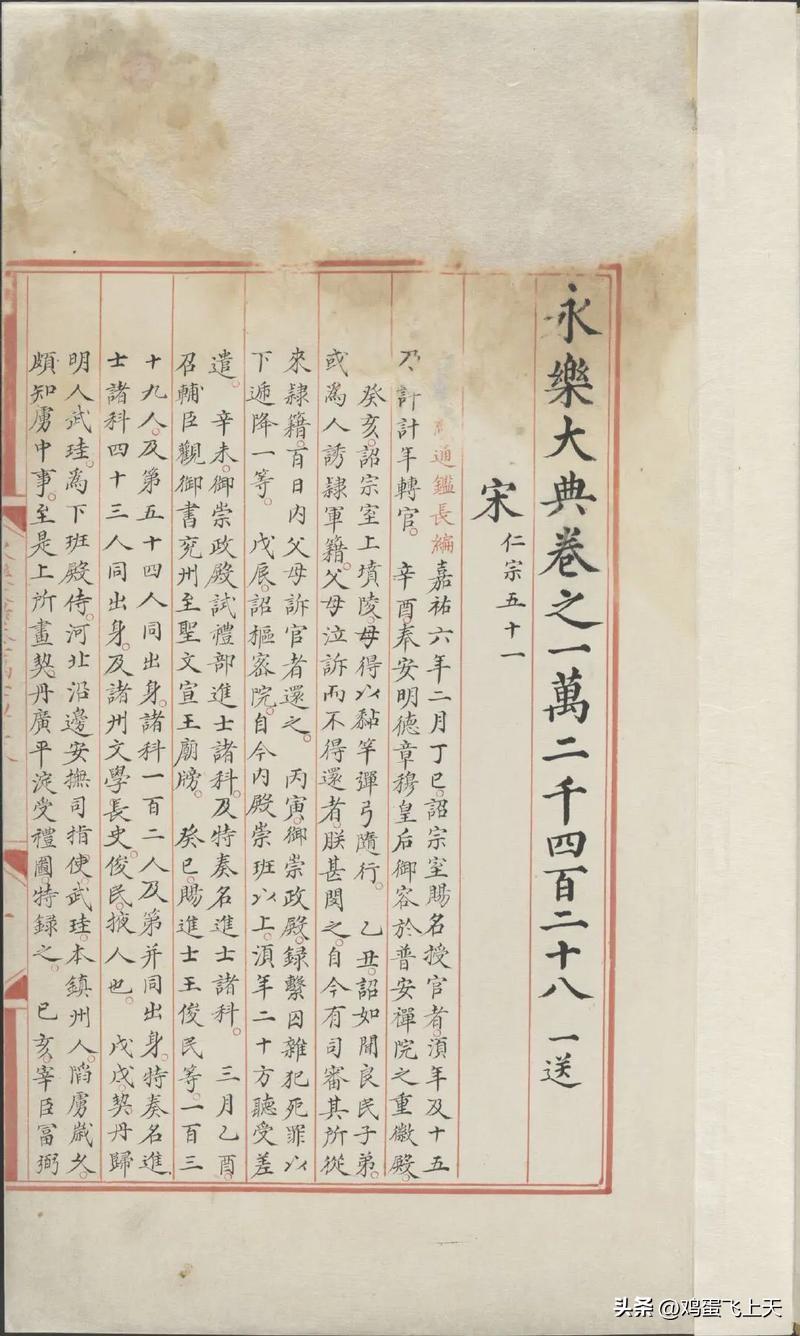 永樂大典卷之一萬二千四百二十八 一送
宋 仁宗五十一
通鑑長編嘉祐六年二月丁巳。詔宗室賜名授官者。須年及十五
乃計計年轉官。 辛酉。奉安明德章穆皇后御容於普安禪院之重徽殿。
癸亥。詔宗室上墳陵。毋得以黏竿彈弓隨行。 乙丑。詔如聞良民子弟。
或爲人誘隷軍籍。父母泣訴而不得還者。朕甚閔之。自今有司審其所從
來隷籍。百日內父母訴官者還之。 丙寅。御崇政殿。錄繫囚雜犯死罪以
下遞降一等。 戊辰。詔樞密院。自今内殿崇班以上。須年二十方聽受差
遣。 辛未。御崇政殿試禮部進士諸科。及特奏名進士諸科。 三月乙酉。
召輔臣觀御書兖州至聖文宣王廟牓。 癸巳。賜進士王俊民等。一百三
十九人。及第五十四人同出身。諸科一百二人及第并同出身。特奏名進
士諸科四十三人同出身。及諸州文學長史。俊民。掖人也。 戊戌。契丹歸
明人武珪。爲下班殿侍。河北沿邊安撫司指使。武珪。本鎮州人。陷虜歲久。
頗知虜中事。至是上所畫契丹廣平淀受禮圖。特録之。 已亥。宰臣富弼
头条 @鸡蛋飞上天